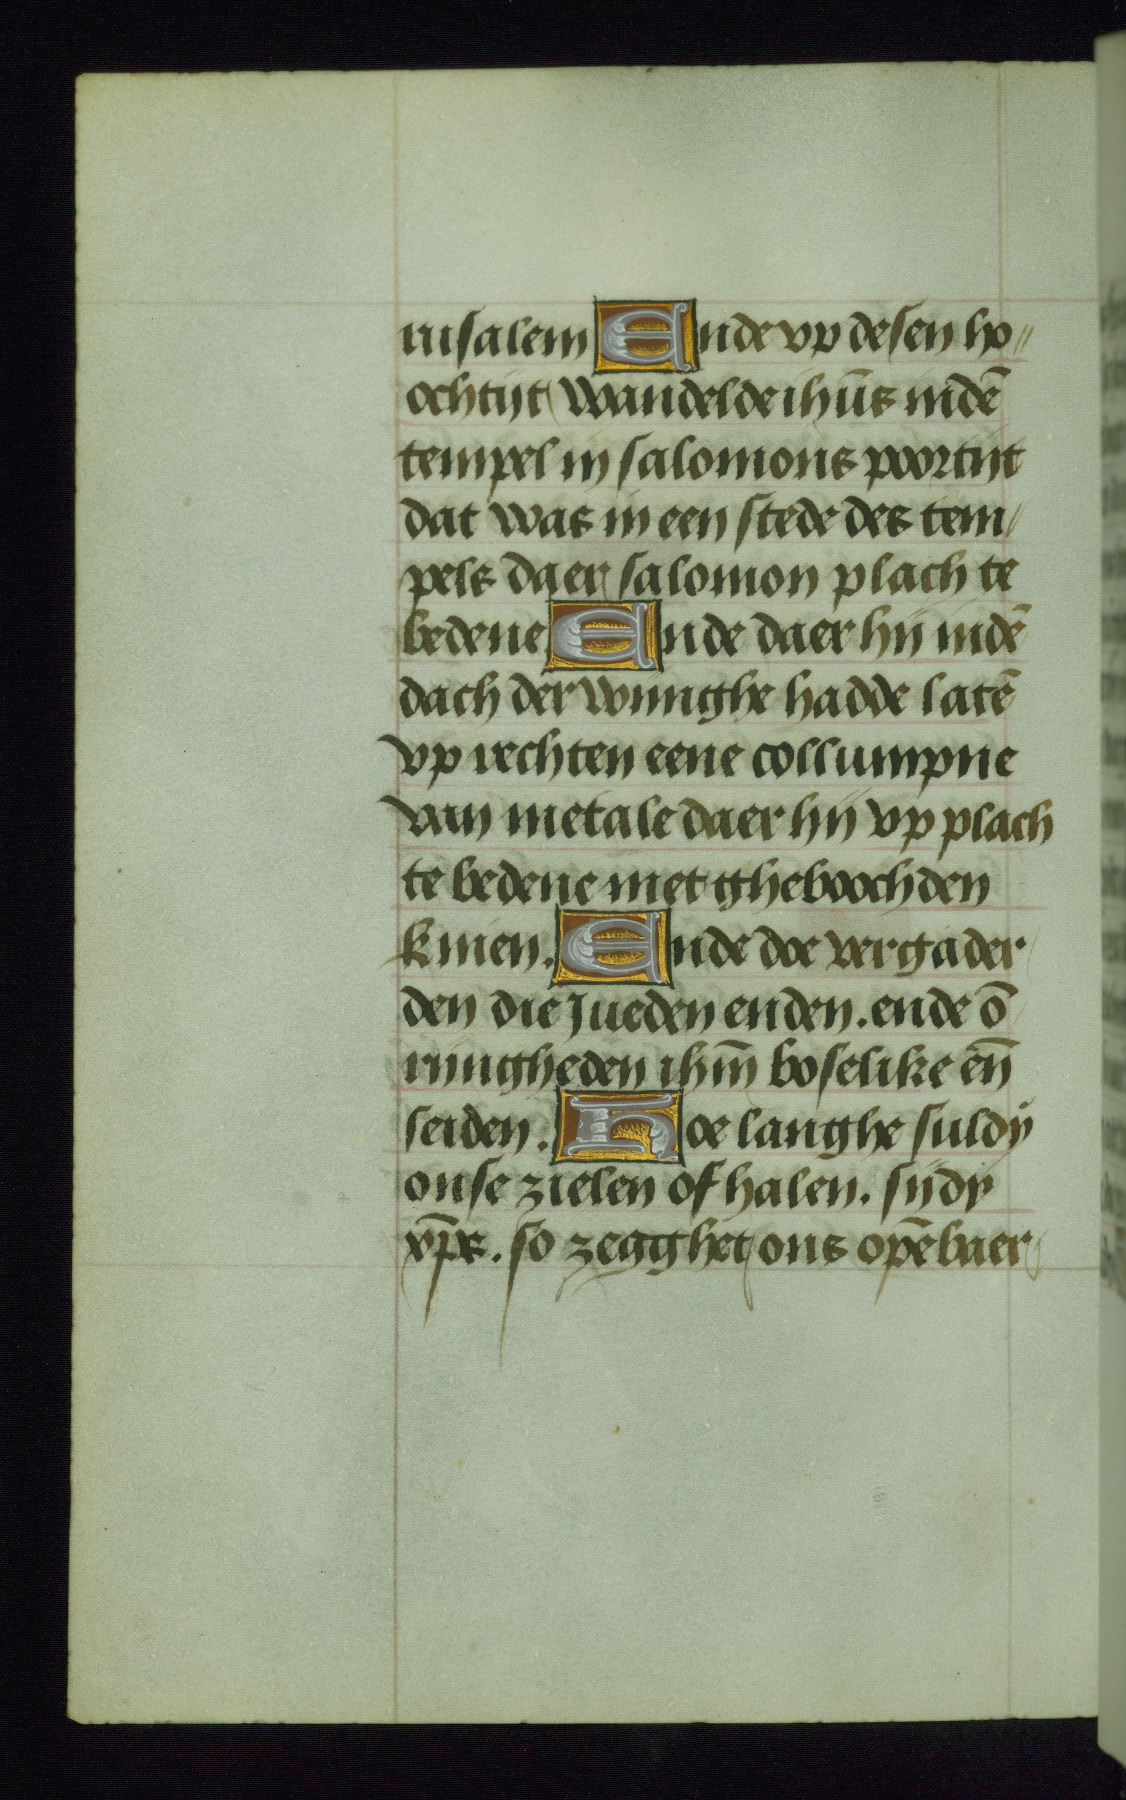 rusalem Ende vp desen ho〃
ochtijt wandelde ihūs indē
tempel in salomons poortijt
dat was in een stede des tem/
pels daer salomon plach te
bedene Ende daer hij indē
dach der wijnghe hadde latē
vp rechten eene collumpne
van metale daer hij vp plach
te bedene met gheboochden
knien. Ende doe vergader
den die Jueden enden. ende ō
rijngheden ihm̄ boselike en̄
seiden. Hoe langhe suldÿ
onse zielen of halen. sijdÿ
xp̄s. so zegghet ons opēbaer